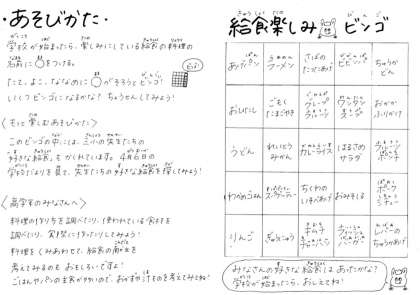 ・あそびかた・
学校が始まったら、楽しみにしている給食の料理の
名前に○をつける。
たて、よこ、ななめに○がそろうとビンゴ!
いくつビンゴになるかな？ちょうせんしてみよう！
＜もっと楽しむあそびかた＞
このビンゴの中には、三小の先生たちの
好きな給食もかくれています。4月6日の
学校だよりを見て、先生たちの好きな給食を探してみよう！
＜高学年のみなさんへ＞
料理の作り方を調べたり、使われている食材を
調べたり、実際に作ったりしてみよう！
料理をくみあわせて、給食の献立を
考えてみるのもおもしろいですよ！
ごはんやパンの主食が多いので、おかずや汁ものを考えてみてね！
給食楽しみ ビンゴ
あげパン
ラーメン
さばの
たつたあげ
ビビンバ
ちゅうか
どん
おひたし
ごもく
たまごやき
グレープ
ワンタン
スープ
おかか
ふりかけ
うどん
れいとう
みかん
カレーライス
はるさめ
サラダ
わかめごはん
ちくわの
いそべあげ
おみそしる
ポーク
シチュー
りんご
ぎゅうにゅう
ちゅうかあげ
みなさんの好きな給食はあったかな？
学校が始まったら、おしえてね！